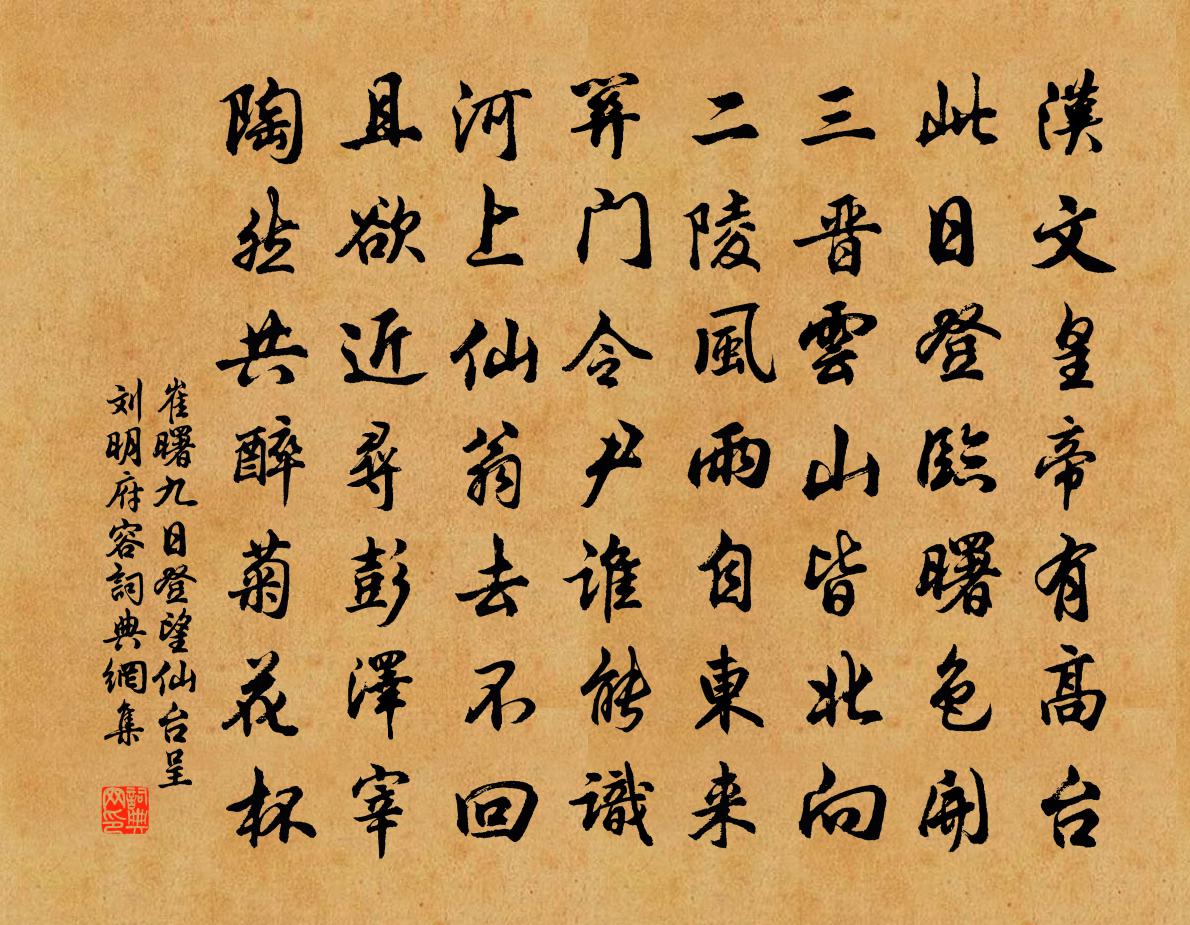 漢文皇帝有高台
此日登臨曙色開
三晋雲山皆北向
二陵風雨自東来
関門令尹誰能識
河上仙翁去不回
且欲近尋彭澤宰
陶然共醉菊花杯
崔曙九日登望仙台呈
刘明府容詞典網集
詞典
网印